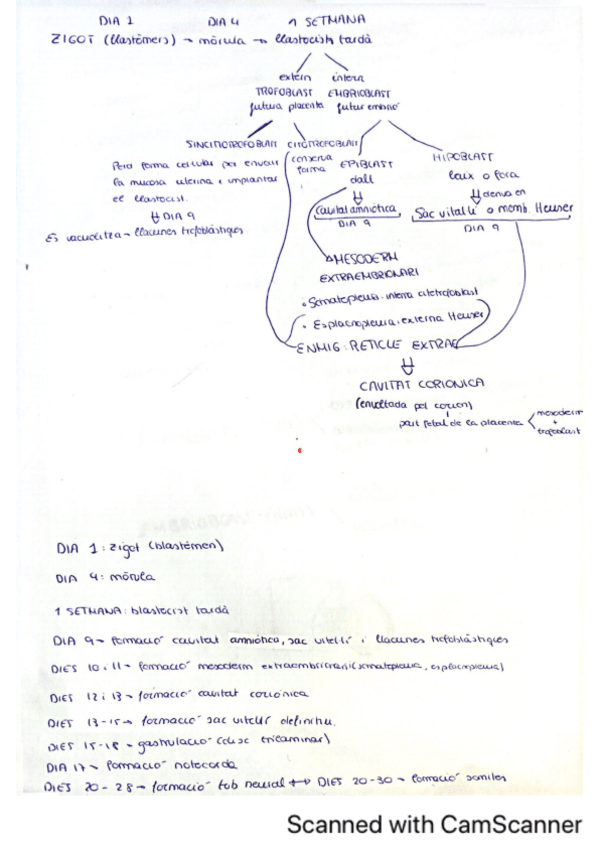 DIA 1 DIA 4 1 SETMANA
ZIGOT (blastòmers) → mòrula → blastocist tardà
extern intern
TROFOBLAST EMBRIOBLAST
futura placenta futur embrió
SINCITIOTROFOBLAST CITOTROFOBLAST
Perd forma cel·lular per envair
la mucosa uterina i implantar
el blastocist.
⇓ DIA 9
Es vacuolitza → llacunes trofoblàstiques
conserva
forma
EPIBLAST
dalt
⇓
Cavitat amniòtica,
DIA 9
HIPOBLAST
baix o fora
⇓ deriva en
Sac vital·lí o memb. Heuser
DIA 9
MESODERM
EXTRAEMBRIONARI
• Somatopleura: interna citotrofoblast
• Esplacnopleura: externa Heuser
ENMIG: RETICLE EXTRAE
⇓
CAVITAT CORIONICA
(envoltada pel corion)
part fetal de la placenta < mesoderm
+
trofoblast
DIA 1: zigot (blastòmen)
DIA 4: mòrula
1 SETMANA: blastocist tardà
DIA 9 → formació cavitat amniòtica, sac vitel·lí i llacunes trofoblàstiques
DIES 10 i 11 → formació mesoderm extraembrionari (somatopleura, esplacnopleura)
DIES 12 i 13 → formació cavitat coriónica
DIES 13-15 → formació sac vitel·lí definitiu.
DIES 15-18 → gastrulació (disc trilaminar)
DIA 17 → formació notocorda
DIES 20 - 28 → formació tub neural ↔ DIES 20-30 → formació somites
Scanned with CamScanner